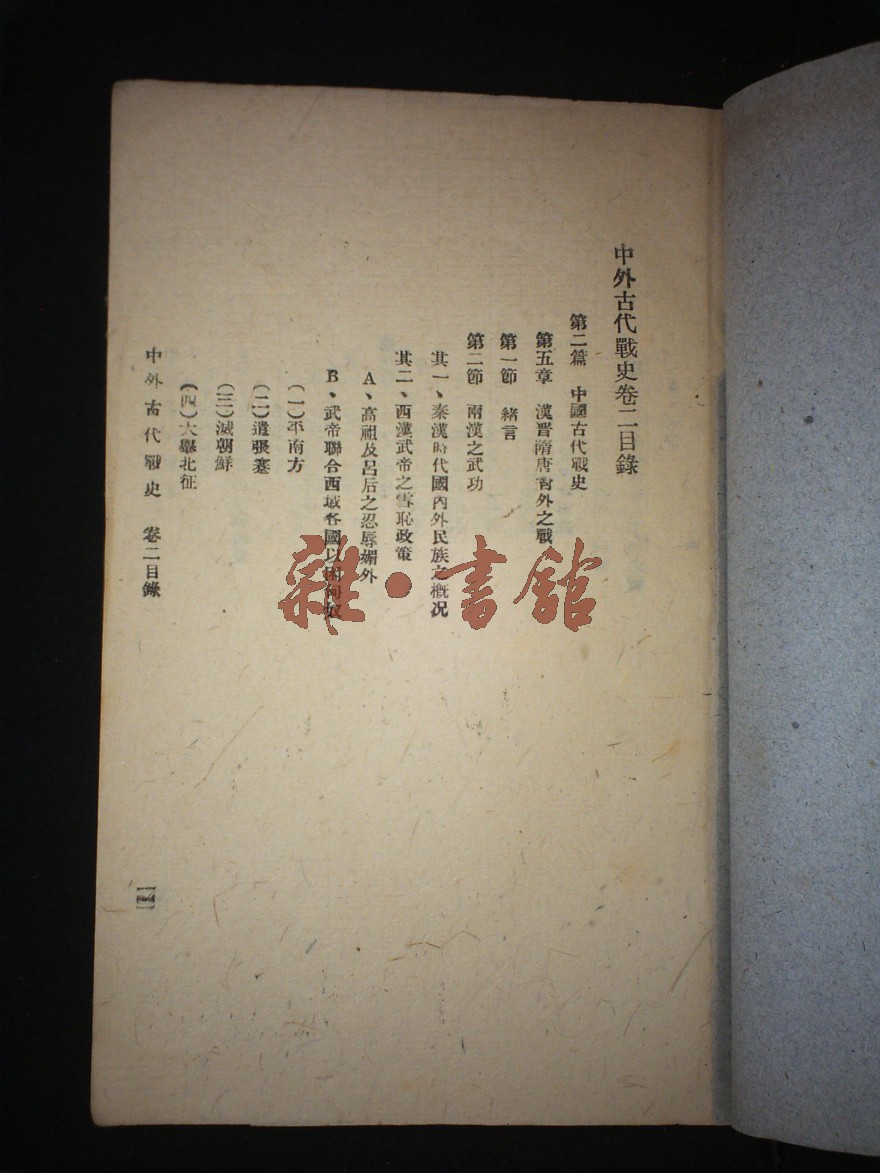 中外古代戰史卷二目錄
第二篇 中國古代戰史
第五章 漢晋隋唐對外之戰
第一節 緒言
第二節 兩漢之武功
其一、秦漢時代國內外民族之概况
其二、西漢武帝之雪恥政策
A、高祖及呂后之忍辱媚外
B、武帝聯合西域各國以困匈奴
(一)平南方
(二)遣張騫
(三)滅朝鮮
(四)大舉北征
中外古代戰史 卷二目錄
雜·書館